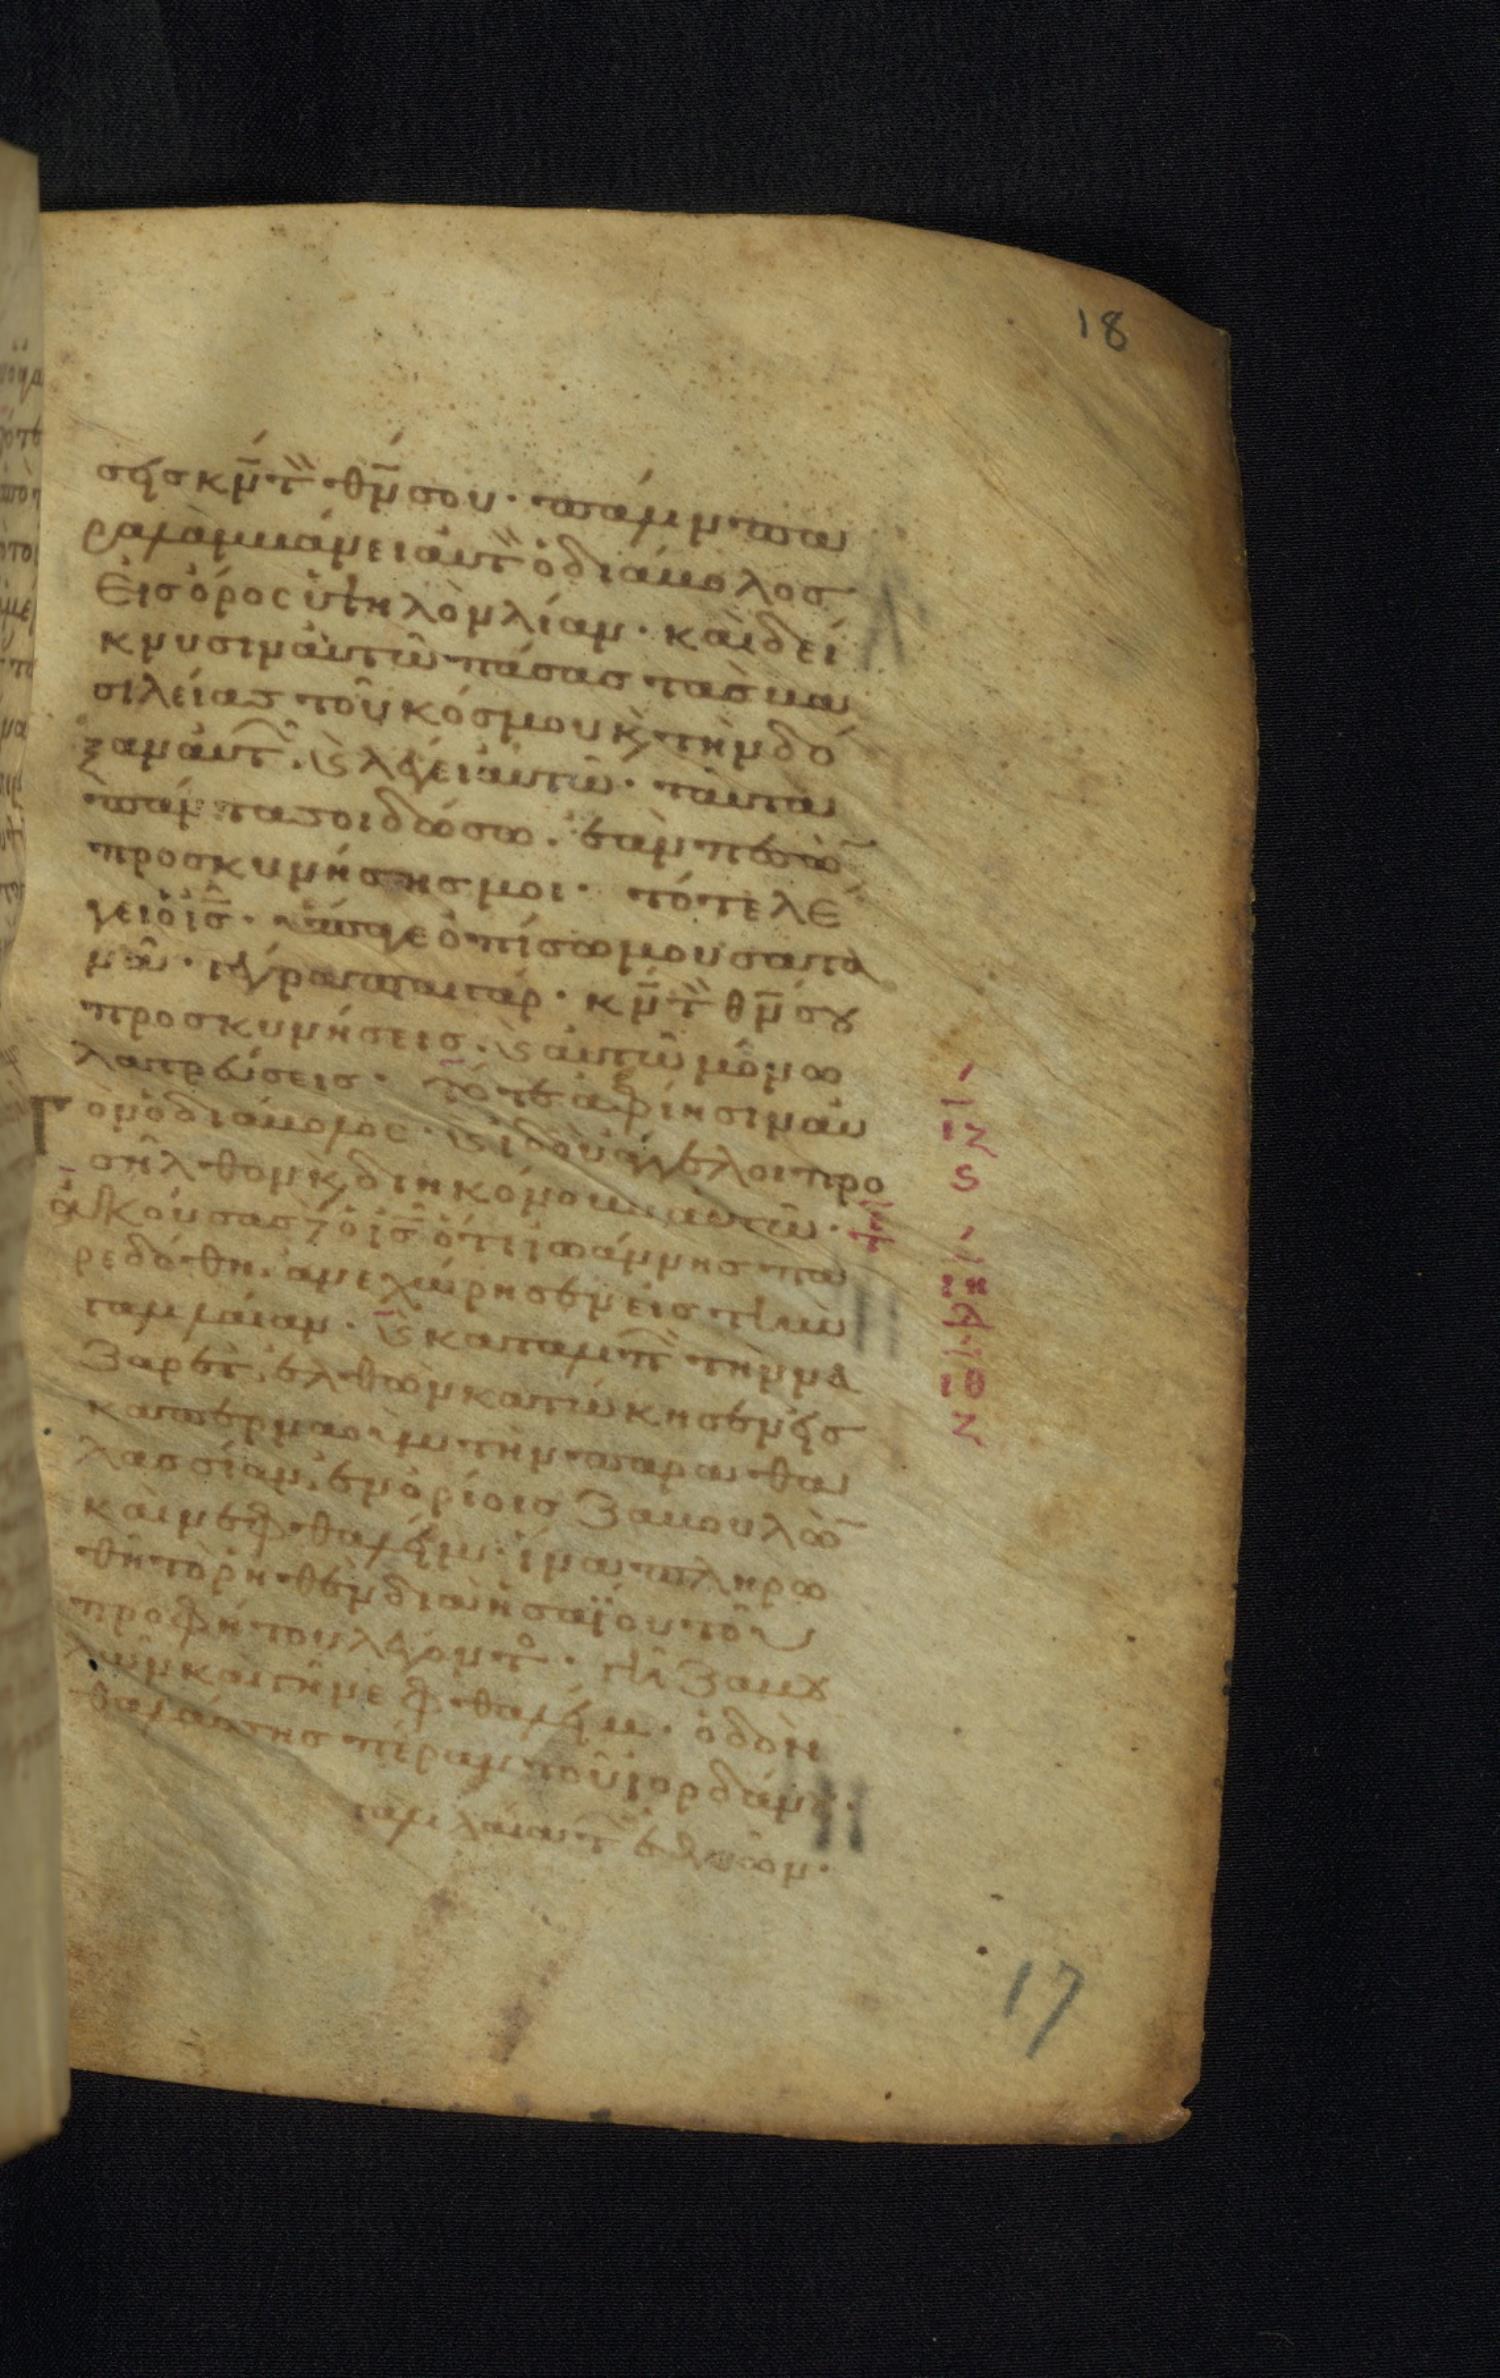 18
σεις κν̄ τὸν θν̄ σου· πάλιν πα
ραλαμβάνει αὐτὸν ὁ διάβολος
εἰς ὄρος ὑψηλὸν λίαν· καὶ δεί
κνυσιν αὐτῶ πάσας τὰς βα
σιλείας τοῦ κόσμου κ̀ τὴν δό
ξαν αὐτῶν· κ̀ λέγει αὐτῶ· ταῦτα
πάντα σοι δώσω· ἐὰν πεσὼ̄
προσκυνήσης μοι· τότε λέ
γει ὁ ις̄· ὕπαγε ὀπίσω μου σατα
νᾶ· γέγραπται γάρ· κν̄ τὸν θν̄ σου
προσκυνήσεις· κ̀ αὐτῶ μόνω
λατρεύσεις· τότε ἀφίησιν αὐ
τὸν ὁ διάβολος· κ̀ ἰδοὺ ἄγγελοι προ
σῆλθον κ̀ διηκόνουν αὐτῶ·
ἀκούσας δὲ ὁ ις̄ ὅτι ἰωάννης πα
ρεδόθη· ἀνεχώρησεν εἰς τὴν
γαλιλαίαν· κ̀ καταλιπὼν τὴν να
ζαρὲτ· ἐλθὼν κατώκησεν εἰς
καπερναοὺμ τὴν παραθα
λασσίαν· ἐν ὁρίοις ζαβουλὼ̄
καὶ νεφθαλείμ· ἵνα πληρω
θῆ τὸ ῥηθὲν διὰ ἡσαΐου τοῦ
προφήτου λέγοντος· γῆ ζαβου
λὼν καὶ γῆ νεφθαλείμ· ὁδὸν
θαλάσσης πέραν τοῦ ἰορδάνου·
γαλιλαία τῶν ἐθνῶν·
ι
ιζ
ϛ
ι
ιη
δ
ι
ιθ
ζ
17